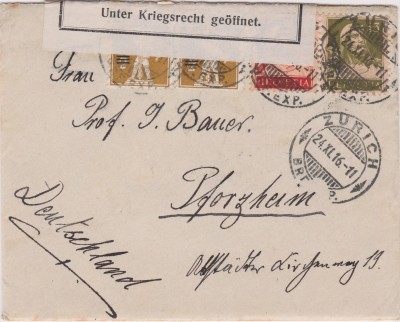 Unter Kriegsrecht geöffnet.
15
HELVETIA
EXP.
EXP.
EXP.
Frau
Prof. J. Bauer.
Pforzheim
ZÜRICH
24.XI.16.-11
Deutschland
Altstädter Kirchenweg 19.